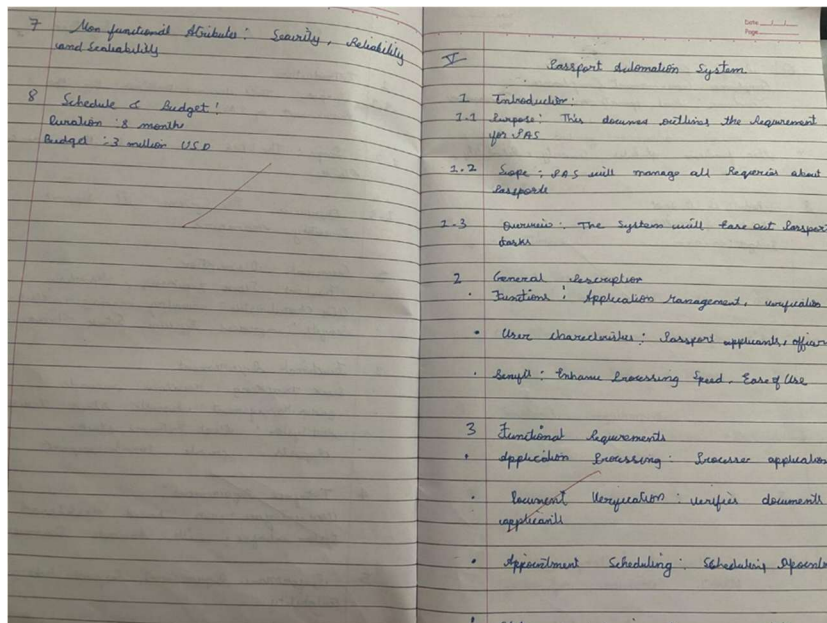 7 Non functional Atributes: Security, Reliability
and Scalability
8 Schedule & Budget:
Duration : 8 month
Budget : 3 million USD
Date
Page
V
Passport Automation System
1 Introduction:
1.1 Purpose: This documen outlines the Requirement
for PAS
1.2 Scope: PAS will manage all Requries about
Passports
1.3 Overview: The System will Ease out Passport
tasks
2 General Description
• Functions: Application Management, verification
• User characteristics: Passport applicants, officer
• Benefit: Enhance Processing Speed, Ease of Use
3 Functional Requirements
• Application Processing: Processes application
• Document Verification: verifies documents
applicants
• Appointment Scheduling: Scheduling